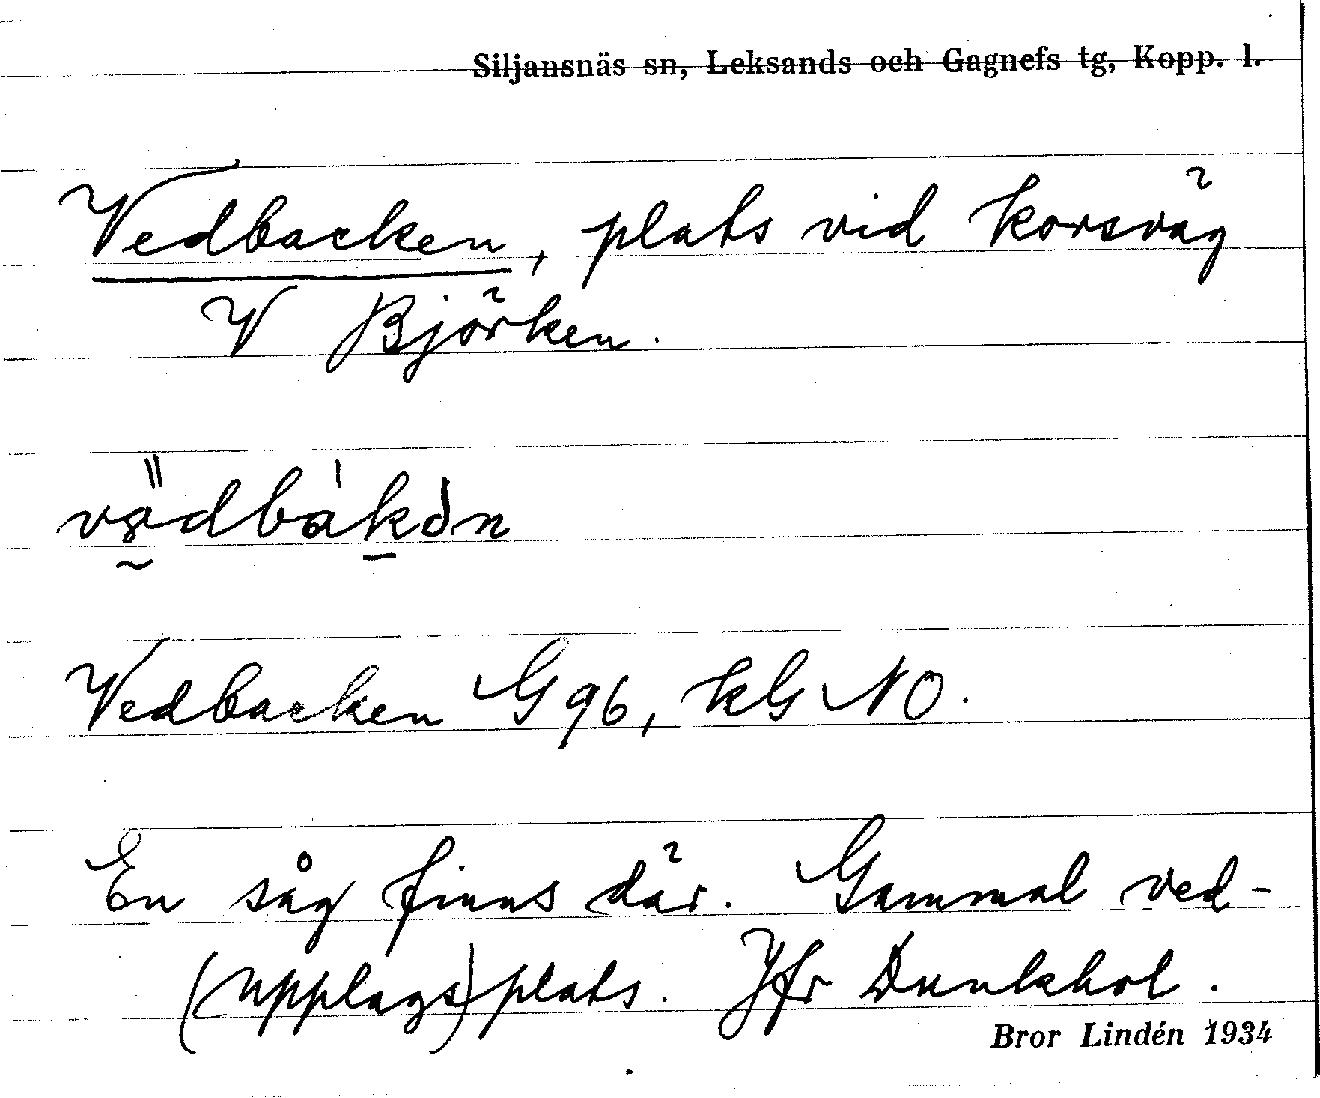 Siljansnäs sn, Leksands och Gagnefs tg, Kopp. l.
Vedbacken, plats vid korsväg
V Björken.
Vedbacken G 96, kG NO.
En såg finns där. Gammal ved-
(upplags)plats. Jfr Dunkhol.
Bror Lindén 1934